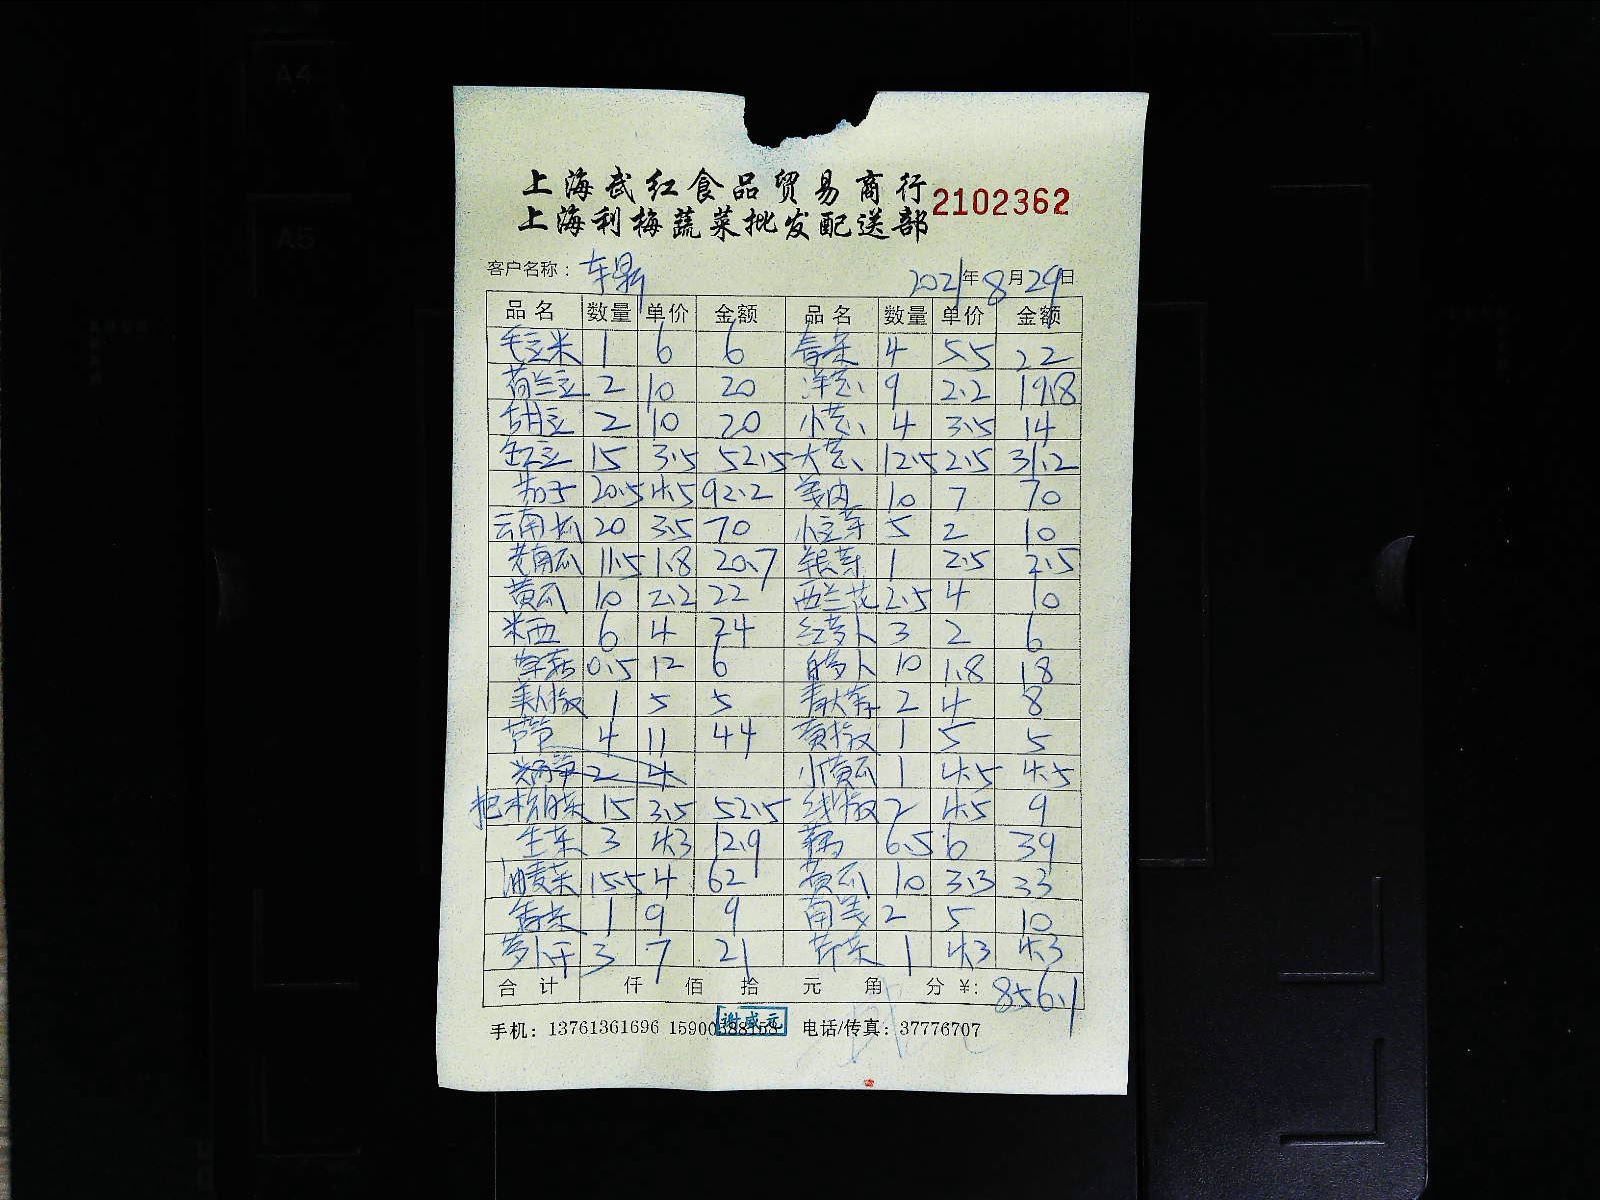 上海武红食品贸易商行
2102362
上海利梅蔬菜批发配送部
客户名称： 2021年8月29日
品名 数量 单价 金额 品名 数量 单价 金额
毛豆米 1 6 6 香菜 4 5.5 22
荷兰豆 2 10 20 洋葱 9 2.2 19.8
2 10 20 小葱 4 3.5 14
豇豆 15 3.5 52.5 大葱 12.5 2.5 31.2
茄子 20.5 4.5 92.2 姜肉 10 7 70
云南瓜 20 3.5 70 小豆芽 5 2 10
老南瓜 11.5 1.8 20.7 银芽 1 2.5 2.5
黄瓜 10 2.2 22 西兰花 2.5 4 10
米西 6 4 24 红萝卜 3 2 6
草菇 0.5 12 6 白萝卜 10 1.8 18
美人椒 1 5 5 2 4 8
芦笋 4 11 44 黄椒 1 5 5
2 4 小黄瓜 1 4.5 4.5
15 3.5 52.5 线椒 2 4.5 9
生菜 3 4.3 12.9 藕 6.5 6 39
油麦菜 15.5 4 62 黄瓜 10 3.3 33
香菜 1 9 9 南姜 2 5 10
萝卜干 3 7 21 芹菜 1 4.3 4.3
合计 仟 佰 拾 元 角 分 ¥: 856.1
手机：13761361696 15900 电话/传真：37776707
谢咸元